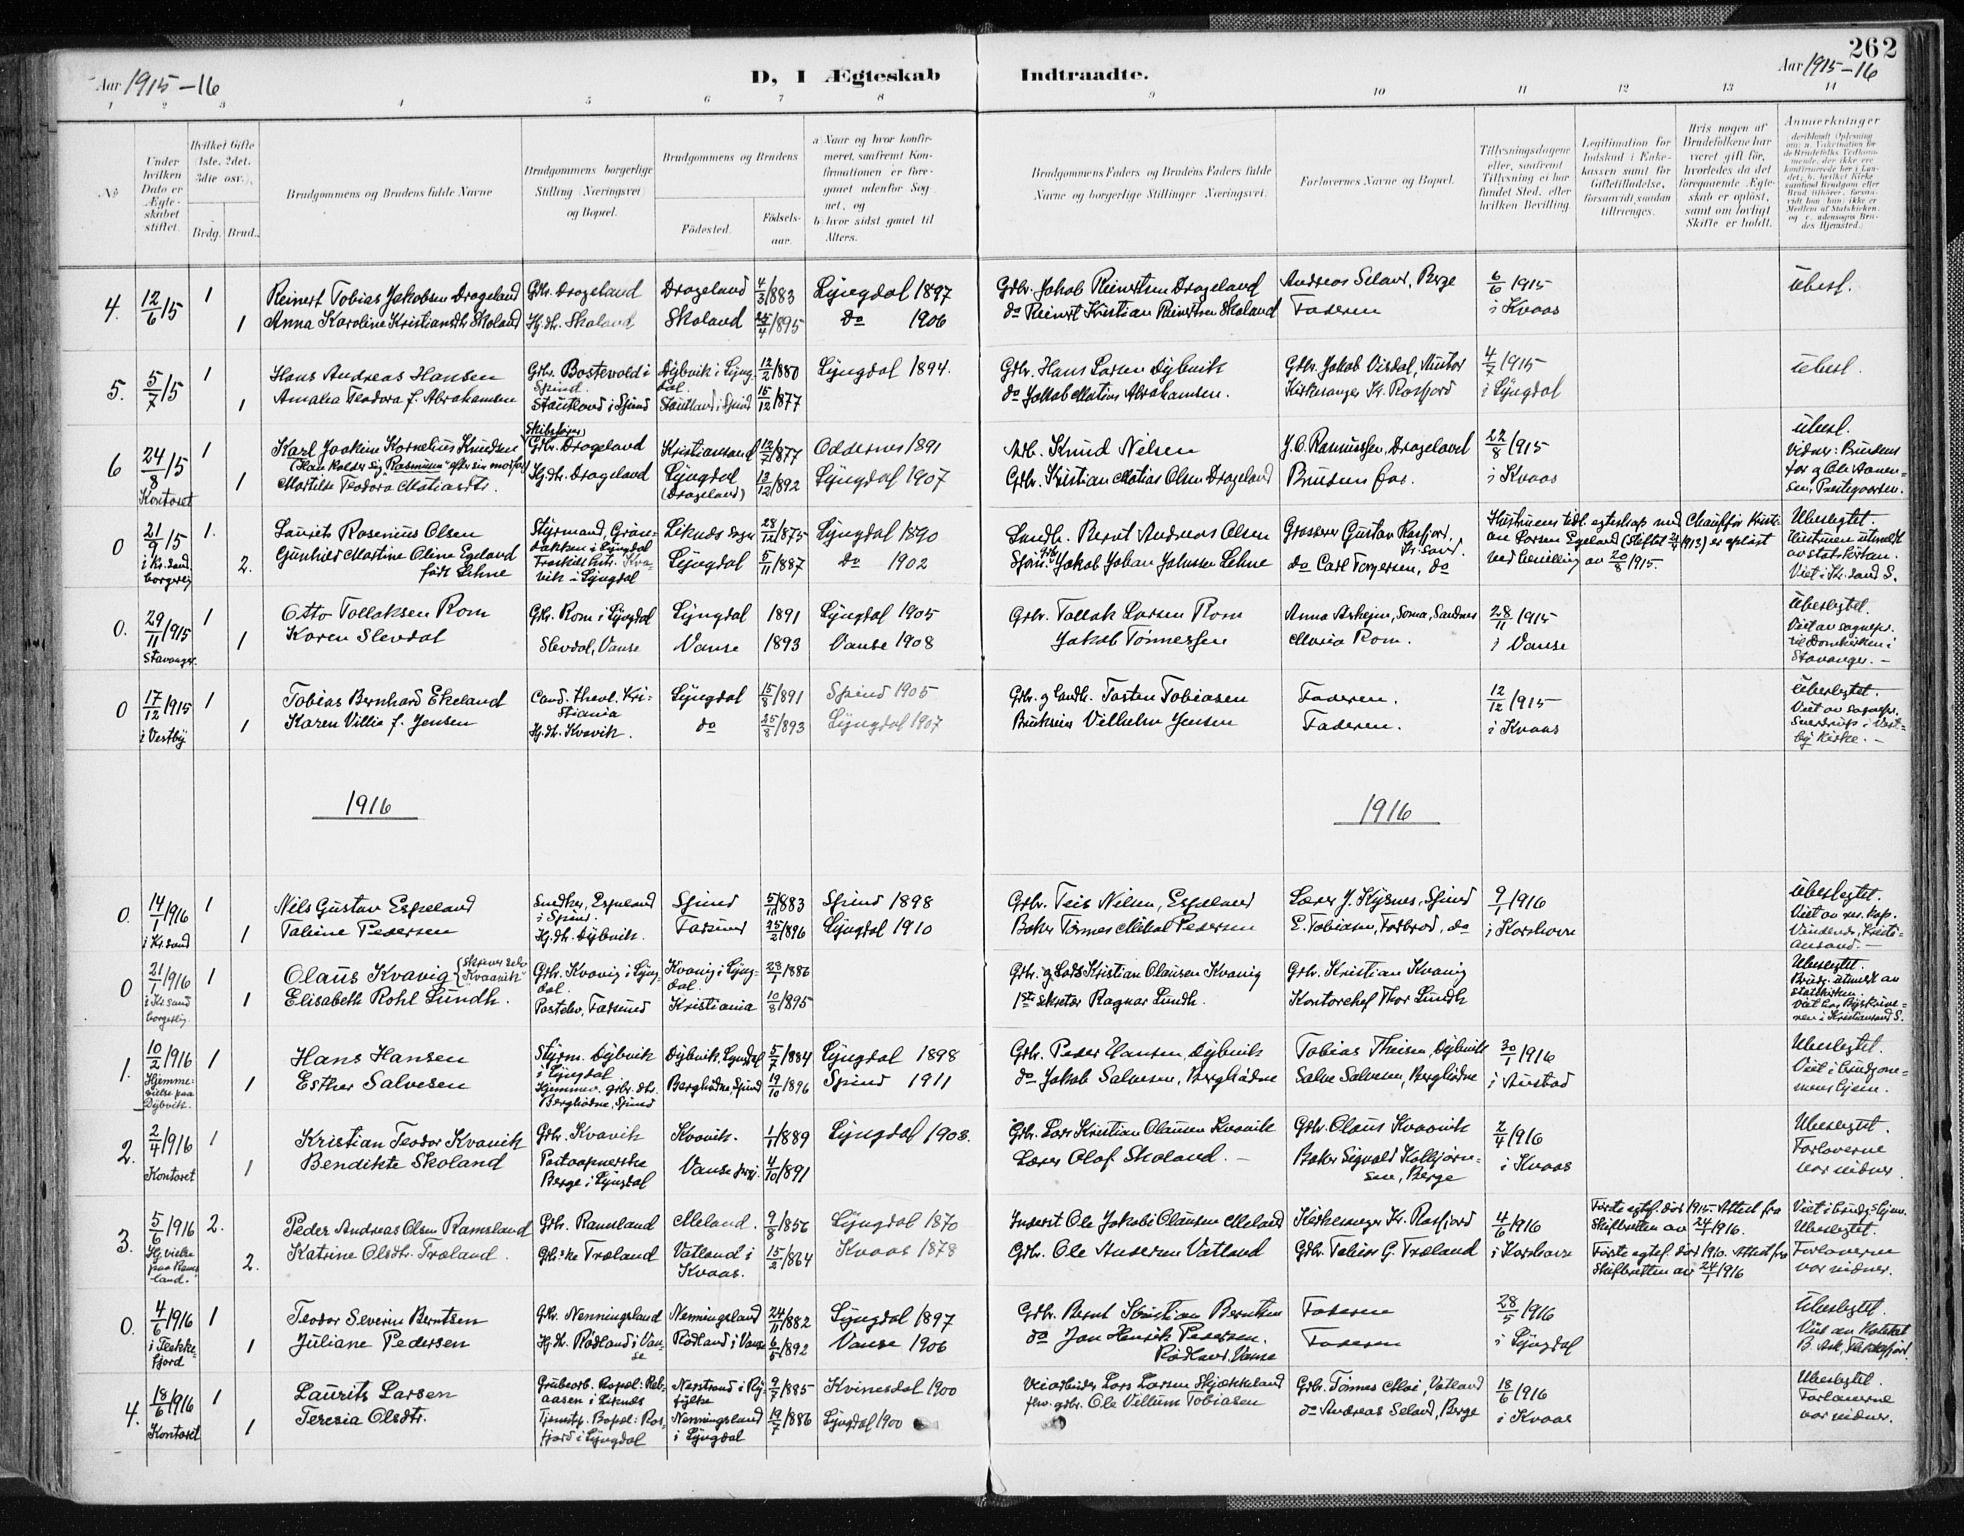 262
Aar 1915-16
D, I Ægteskab Indtraadte.
Aar 1915-16
1 2 3 4 5 6 7 8 9 10 11 12 13 14
No
Under hvilken Dato er Ægteskabet stiftet.
Hvilket Gifte (1ste, 2det, 3die osv.).
Brdg. Brud.
Brudgommens og Brudens fulde Navne
Brudgommens borgerlige Stilling (Næringsvei) og Bopæl.
Brudgommens og Brudens
Fødested.
Fødselsaar.
a) Naar og hvor konfirmeret, saafremt Konfirmationen er foregaaet udenfor Sognet, og
b) hvor sidst gaaet til Alters.
Brudgommens Faders og Brudens Faders fulde Navne og borgerlige Stillinger (Næringsvei).
Forlovernes Navne og Bopæl.
Tillysningsdagene eller, saafremt Tillysning ei har fundet Sted, efter hvilken Bevilling.
Legitimation for Indskud i Enkekassen samt for Giftetilladelse, forsaavidt saadan tiltrænges.
Hvis nogen af Brudefolkene har været gift før, hvorledes da det foregaaende Ægteskab er opløst, samt om lovligt Skifte er holdt.
Anmærkninger
4. 12/6 15 1 Reinert Tobias Jakobsen Drageland Gbr. Drageland Drageland 4/3 1883 Lyngdal 1897 Gbr. Jakob Reinertsen Drageland Andreas Seland, Berge 6/6 1915 Ubesl.
1 Anna Karoline Kristiansdtr. Skoland Hj.dtr. Skoland Skoland 25/4 1895 do 1906 do Reinert Kristian Reinertsen Skoland Faderen i Kvaas
5. 5/7 15 1 Hans Andreas Hansen Gbr. Bostevold i Spind. Dybvik i Lyngdal. 12/2 1880 Lyngdal 1894. Gbr. Hans Larsen Dybvik Gbr. Jakob Visdal, Austad 4/7 1915 Ubesl.
1 Amalia Teodora f. Abrahamsen Stautland i Spind Stautland i Spind 15/12 1877 do Jakob Matias Abrahamsen. Kirkesanger Kr. Rosfjord i Lyngdal
6 24/8 15 Kontoret 1 Karl Joakim Kornelius Knudsen (Han kalder sig "Rasmussen" efter sin morfar) Skibstømr. Gbr. Drageland Kristianssand 12/7 1877 Oddernes 1891 Arb. Knud Nilsen J. C. Rasmussen, Drageland 22/8 1915 Ubesl. Vidner: Brudens far og Ole Aanensen, Prestegaarden.
1 Martilde Teodora Matiasdtr. Hj.dtr. Drageland Lyngdal (Drageland) 13/12 1892 Lyngdal 1907 Gbr. Kristian Matias Olsen Drageland Brudens far. i Kvaas
0 21/9 15 i Kr.sand borgerlig 1. Laurits Rosenius Olsen Styrmand, Grønbakken i Lyngdal Liknes sogn 28/11 1875 Lyngdal 1890 Landh. Bernt Andreas Olsen Grosserer Gustav Rosfjord, Kr.sand. Hustruens tidl. egteskap med Chauffør Kristian Larsen Egeland (stiftet 1913) er opløst ved bevilling av 20/8 1915. Ubeslegtet. Hustruen utmeldt av statskirken. Viet i Kr.sand S.
2. Gunhild Martine Oline Egeland født Lehne Fraskilt hustr. Kvavik i Lyngdal Lyngdal 5/11 1887 do 1902 Sjøm. Jakob Johan Jakobsen Lehne do Carl Torgersen, do
0. 29/11 1915 Stavanger. 1 Otto Tollaksen Rom Gbr. Rom i Lyngdal Lyngdal 1891 Lyngdal 1905 Gbr. Tollak Larsen Rom Anna Askejen, Soma, Sandnes 28/11 1915 Ubeslegtet. Viet av sognepr. til Domkirken i Stavanger. -
1 Karen Slevdal Slevdal, Vanse Vanse 1893 Vanse 1908 Jakob Tønnessen Maria Rom. i Vanse
0 17/12 1915 i Vestby 1 Tobias Bernhard Ekeland Cand. theol. Kristiania Lyngdal 15/8 1891 Spind 1905 Gbr. og Landh. Tosten Tobiasen Faderen. 12/12 1915 Ubeslegtet. Viet av sognepr. Sverdrup i Vestby kirke. -
1 Karen Villia f. Jensen Hj.dtr. Kvavik. do 25/8 1893 Lyngdal 1907 Brukseier Vilhelm Jensen Faderen. i Kvaas
1916 1916
0. 14/1 1916 i Kr.sand 1 Nils Gustav Espeland Snedker, Espeland i Spind. Spind 5/11 1883 Spind 1898 Gbr. Teis Nilsen, Espeland Lærer J. Kysnes, Spind 9/1 1916 Ubeslegtet. Viet av res. kap. Vindenes, Kristiansand. -
1 Tabine Pedersen Hj.dtr. Dybvik. Farsund 25/2 1896 Lyngdal 1910 Baker Tørmes Mikal Pedersen E. Tobiasen, Farbrod, do i Korshavn
0 21/1 1916 i Kr.sand borgerlig. 1 Olaus Kvavig (skriver selv "Kvaavik") Gbr. Kvavig i Lyngdal. Kvavig i Lyngdal. 28/1 1886 Gbr. og Lods Kristian Olausen Kvavig Gbr. Kristian Kvavig Ubeslegtet. Brudg. utmeldt av statskirken. Viet hos Byskriveren i Kristiansand S.
1 Elisabeth Rohl Lundh. Postelev, Farsund Kristiania 10/8 1895 1ste sekretær Ragnar Lundh. Kontorchef Thor Lundh
1. 10/2 1916 Hjemmevielse paa Dybvik. 1 Hans Hansen Styrm. Dybvik i Lyngdal Dybvik, Lyngdal 5/7 1884 Lyngdal 1898 Gbr. Peder Hansen, Dybvik Tobias Theisen, Dybvik 30/1 1916 Ubeslegtet. Viet i brudgommens hjem.
1 Esther Salvesen Hjemmev. gbr. dtr. Berghødne, Spind Berghødne, Spind 19/10 1896 Spind 1911 do Jakob Salvesen, Berghødne Salve Salvesen, Berghødne i Austad
2. 2/4 1916 Kontoret 1 Kristian Teodor Kvavik Gbr. Kvavik Kvavik. 1/1 1889 Lyngdal 1903. Gbr. Lars Kristian Olausen Kvavik Gbr. Olaus Kvaavik 2/4 1916 Ubeslegtet. Forloverne var vidner.
1 Bendikte Skoland Postaapnerske Berge i Lyngdal Vanse prgj. 4/10 1891 Lærer Olaf Skoland. - Baker Sigvald Kolbjørnsen, Berge i Kvaas
3. 5/6 1916 Hj.vielse paa Ramsland. 2. Peder Andreas Olsen Ramsland Gbr. Ramsland Meland. 9/8 1856 Lyngdal 1870 Inderst Ole Jakobi Olausen Meland Kirkesanger Kr. Rosfjord 4/6 1916 Første egtef. død 1915. Attest fra Skifteretten av 24/1 1916. Viet i brudg.s hjem. Ubeslegtet.
2. Katrine Olsdtr. Træland. Gbr.ske Træland Vatland i Kvaas. 15/2 1864 Kvaas 1878 Gbr. Ole Andersen Vatland Gbr. Tobias G. Træland i Korshavn Første egtef. død 1910. Attest fra Skifteretten av 24/1 1916 Forloverne var vidner.
0. 4/6 1916 i Flekkefjord 1 Teodor Severin Berntsen Gbr. Nenningsland Nenningsland 24/11 1882 Lyngdal 1897 Gbr. Bernt Kristian Berntsen Faderen 28/5 1916 Ubeslegtet. Viet av Kateket B. Ask, Flekkefjord.
1 Juliane Pedersen Hj.dtr. Rødland i Vanse Rødland i Vanse 6/5 1892 Vanse 1906 do Jan Henrik Pedersen. Rødland, Vanse Faderen i Lyngdal
4. 18/6 1916 Kontoret 1 Laurits Larsen Grubearb. Bopæl: Rebaasen i Liknes Nerstrand i Ryfylke 9/7 1885 Kvinesdal 1900 Veiarbeider Lars Larsen Skjækkeland Gbr. Tønnes Moi, Vatland 18/6 1916 Ubeslegtet. Forloverne var vidner.
1 Teresia Olsdtr. Tjenestp. Bopæl: Rosfjord i Lyngdal Nenningsland i Lyngdal 19/7 1886 Lyngdal 1900 fhv. gbr. Ole Villum Tobiasen do Andreas Seland, Berge i Kvaas